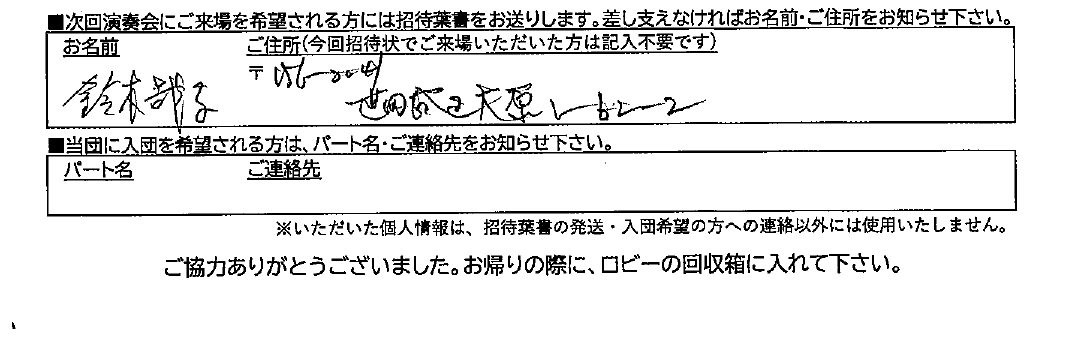 ■次回演奏会にご来場を希望される方には招待葉書をお送りします。差し支えなければお名前・ご住所をお知らせ下さい。
お名前 ご住所(今回招待状でご来場いただいた方は記入不要です)
〒156-0041
鈴木哲子 世田谷区大原1-62-2
■当団に入団を希望される方は、パート名・ご連絡先をお知らせ下さい。
パート名 ご連絡先
※いただいた個人情報は、招待葉書の発送・入団希望の方への連絡以外には使用いたしません。
ご協力ありがとうございました。お帰りの際に、ロビーの回収箱に入れて下さい。